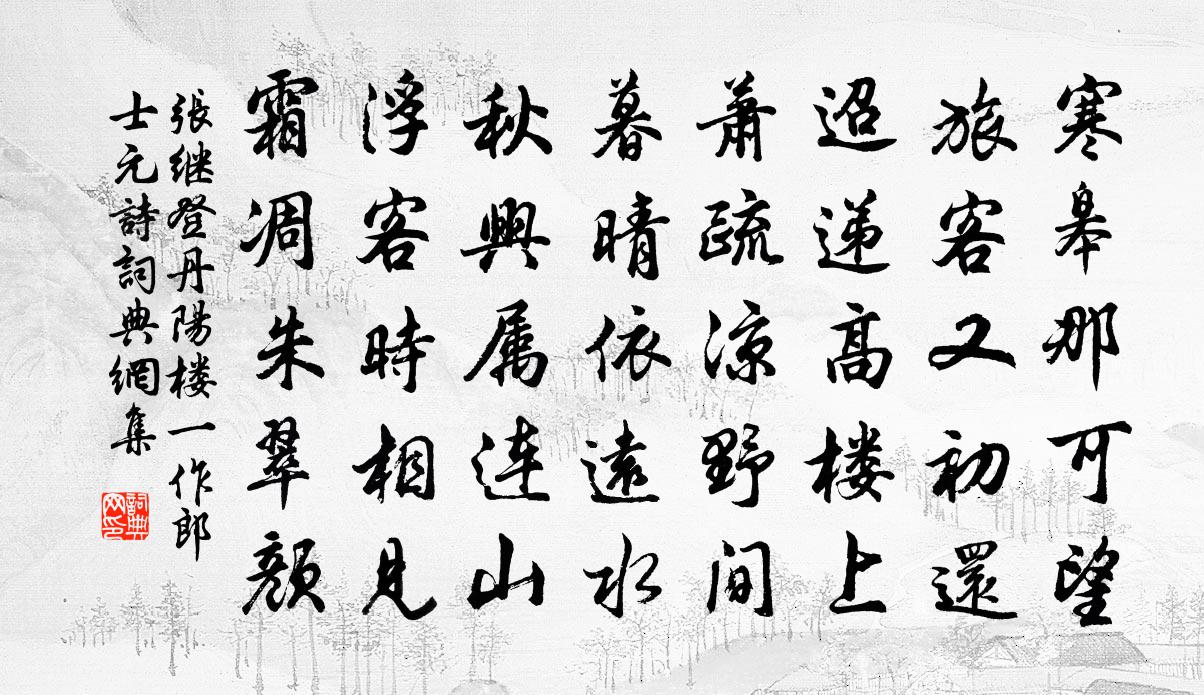 寒皋那可望
旅客又初還
迢递高楼上
蕭疏涼野間
暮晴依遠水
秋興属連山
浮客時相見
霜凋朱翠顔
張继登丹陽楼一作郎
士元詩詞典網集
詞典网印